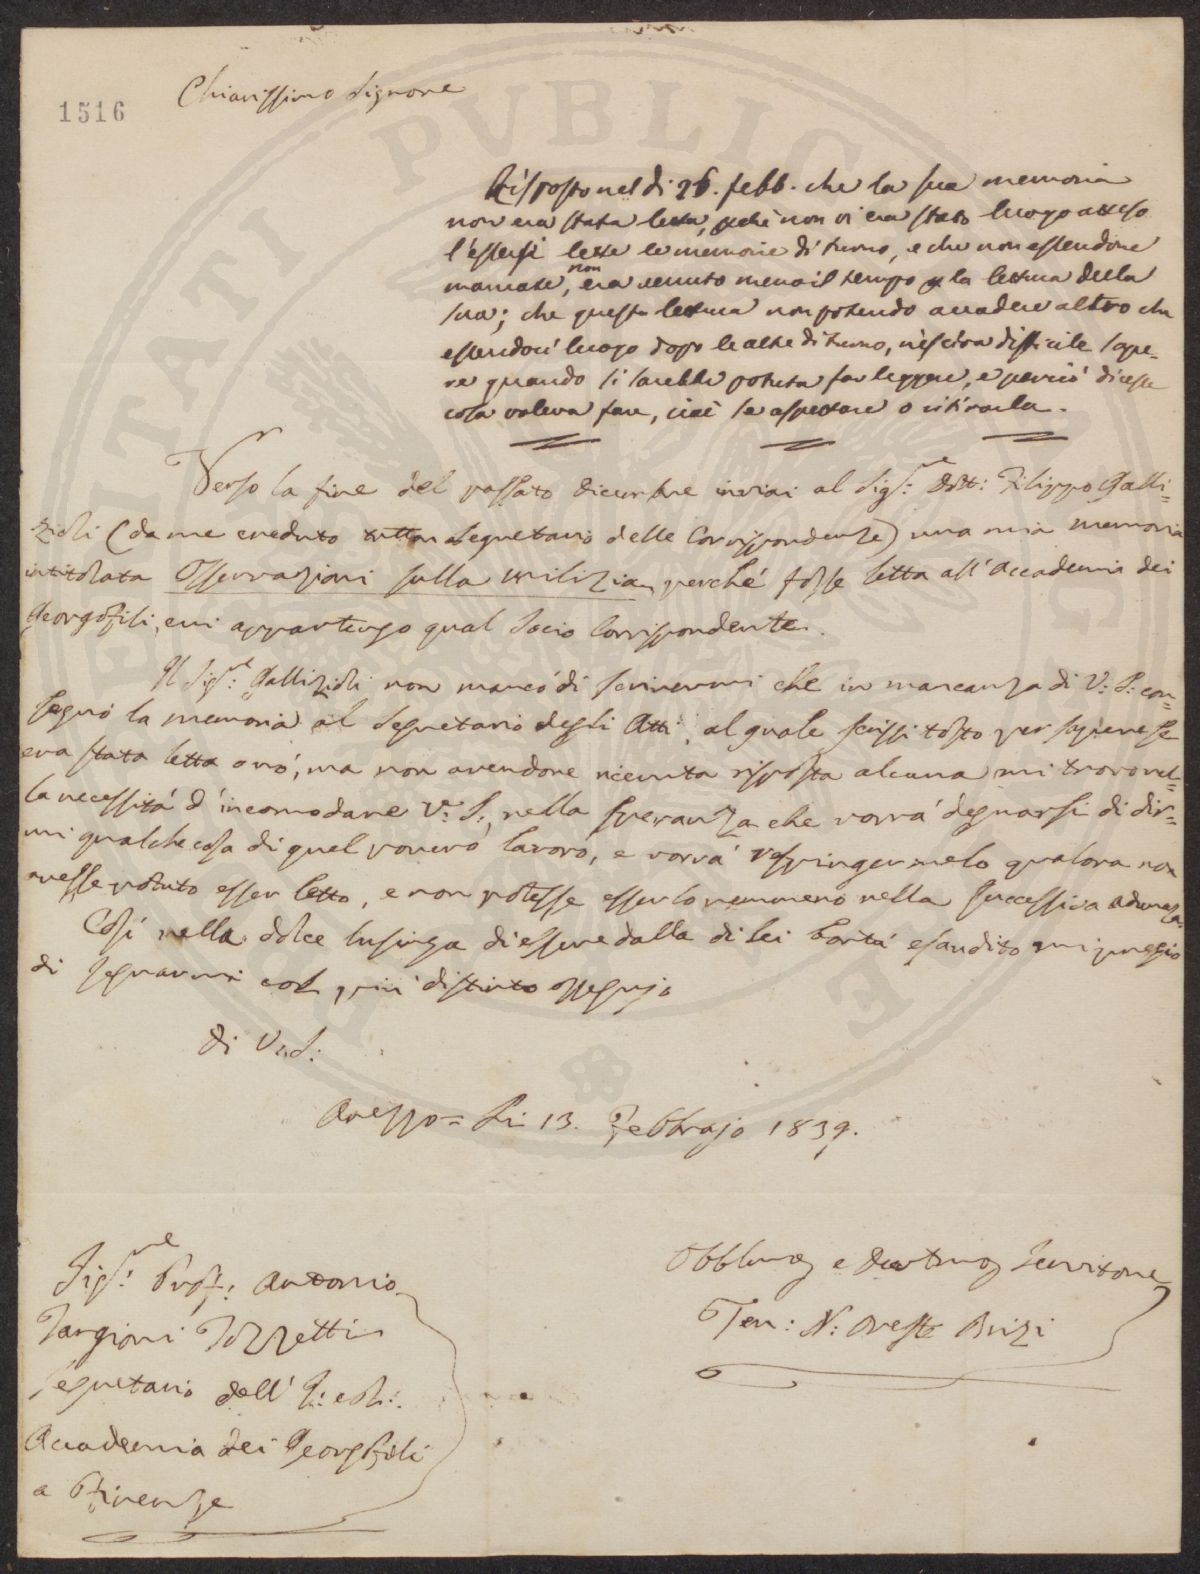 1516
Chiarissimo Signore
Risposto nel dì 26. febb. che la sua memoria
non era stata letta, perché non vi era stato luogo atteso
l'essersi lette le memorie di turno, e che non essendone
mancate, non era venuto meno il tempo per la lettura della
sua; che questa lettura non potendo accadere altro che
essendoci luogo dopo le altre di turno, riesciva difficile sape-
re quando si sarebbe potuta far leggere, e perciò dicesse
cosa voleva fare, cioè se aspettare o ritirarla.
Verso la fine del passato dicembre inviai al Sig.re Dott: Filippo Galli=
zioli (da me creduto tuttora Segretario delle Corrispondenze) una mia memoria
intitolata Osservazioni sulla milizia, perché fosse letta all'Accademia dei
Georgofili, cui appartengo qual Socio Corrispondente.
Il Sig.re Gallizioli non mancò di scrivermi che in mancanza di V: S: con=
segnò la memoria al Segretario degli Atti, al quale scrissi tosto per sapere se
era stata letta o nò, ma non avendone ricevuta risposta alcuna mi trovo nel=
la necessità d'incomodare V: S:, nella speranza che vorrà degnarsi di dir=
mi qualche cosa di quel povero lavoro, e vorrà respingermelo qualora non
avesse potuto esser letto, e non potesse esserlo nemmeno nella successiva adunanza.
Così nella dolce lusinga di essere dalla di lei bontà esaudito mi pregio
di segnarmi col più distinto ossequio
di V: S:
Arezzo = Li 13. Febbrajo 1839.
Sig.re Prof: Antonio
Targioni Tozzetti
Segretario dell' I: e R:
Accademia dei Georgofili
a Firenze
Obblmo e Devtmo Servitore
Ten: N: Oreste Brizi